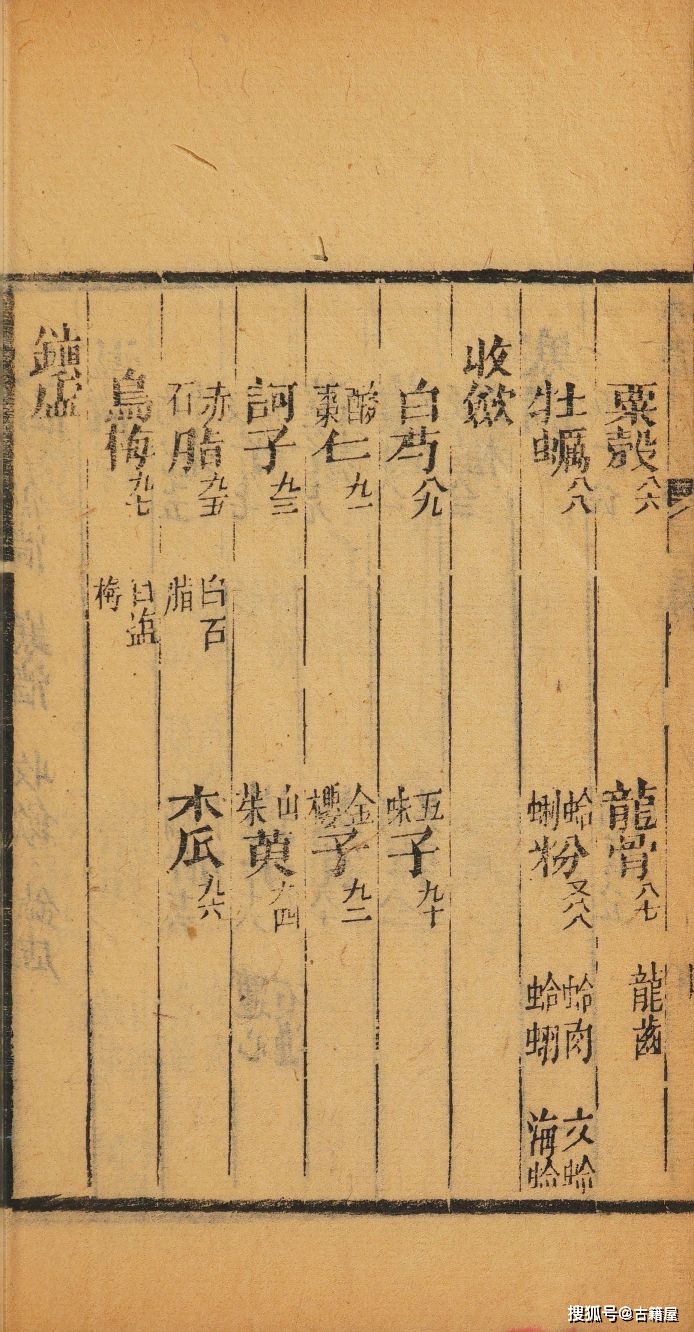 粟殼八六 龍骨八七 龍齒
牡蠣八八 蛤蜊粉又八八 蛤肉 文蛤 海蛤
收歛
白芍八九 五味子九十
酸棗仁九一 金櫻子九二
訶子九三 山茱萸九四
赤石脂九五 白石脂 木瓜九六
烏梅九七 白塩梅
鎮虛
搜狐号@古籍屋